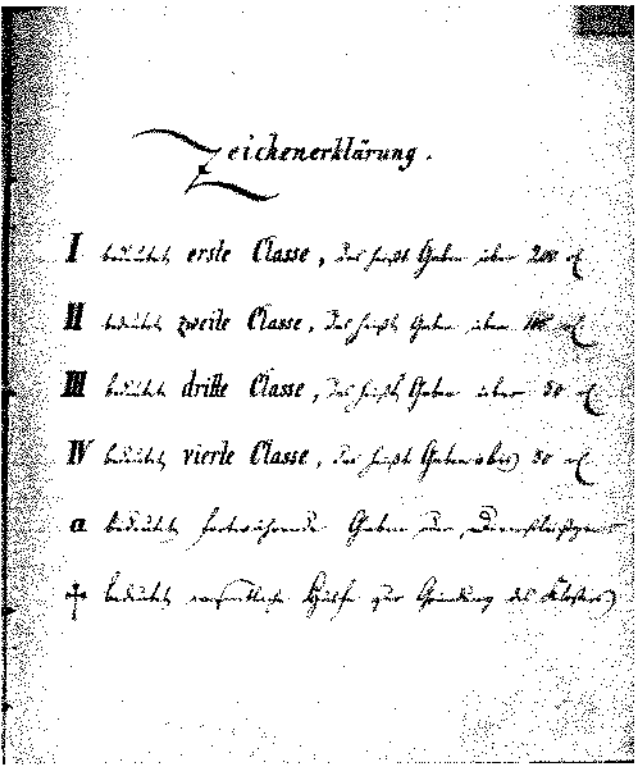 Zeichenerklärung.
I bedeutet erste Classe, das heißt Gaben über 200
II bedeutet zweite Classe, das heißt Gaben über 100
III bedeutet dritte Classe, das heißt Gaben über 50
IV bedeutet vierte Classe, das heißt Gaben bis 50
a bedeutet fortwährende Gaben der
† bedeutet wesentliche Hülfe zur Gründung des Klosters